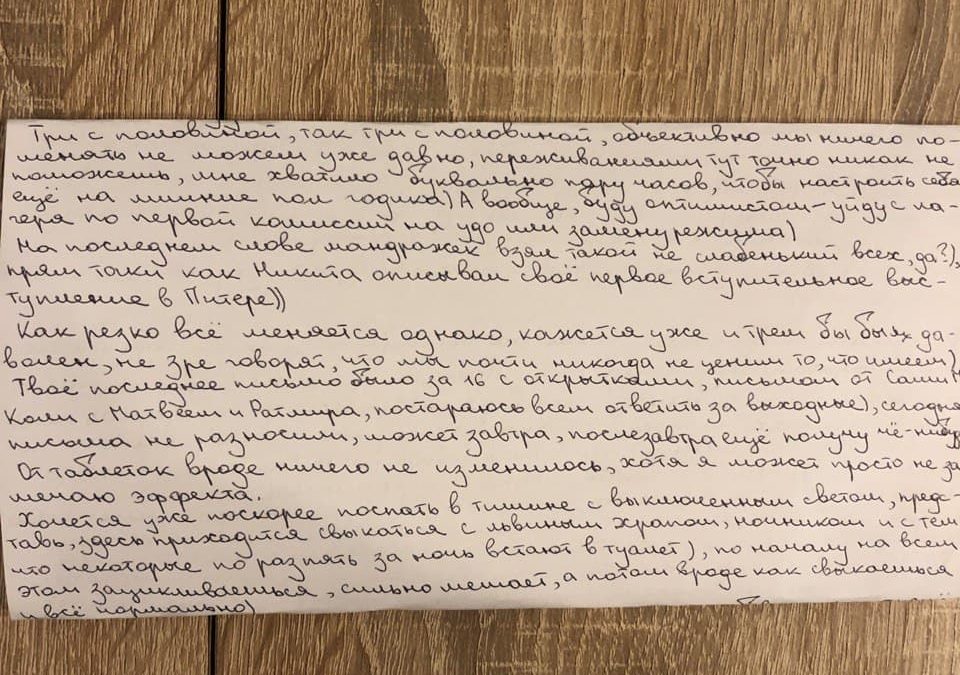 Три с половиной, так три с половиной, объективно мы ничего по-
менять не можем уже давно, переживаниями тут точно никак не
поможешь, мне хватило буквально пару часов, чтобы настроить себя
ещё на лишние пол годика) А вообще, буду оптимистом – уйду с ла-
геря по первой комиссии на удо или замену режима)
На последнем слове мандражек взял такой не слабенький всех, да?),
прям точки как Никита описывал своё первое вступительное выс-
тупление в Питере))
Как резко всё меняется однако, кажется уже и трём бы был да-
волен, не зре говорят, что мы почти никогда не ценим то, что имеем)
Твоё последнее письмо было за 16 с открытками, письмом от Саши
Коли с Матвеем и Ратмира, постараюсь всем ответить за выходные), сегодня
письма не разносили, может завтра, послезавтра ещё получу чё-нибудь
От таблеток вроде ничего не изменилось, хотя я может просто не за
мечаю эффекта.
Хочется уже поскорее поспать в тишине с выключенным светом, предс-
тавь, здесь приходится свыкаться с львиным храпом, ночником и с тем
что некоторые по раз пять за ночь встают в туалет), по началу на всем
этом зацикливаешься, сильно мешает, а потом вроде как свыкаешься
и всё нормально)